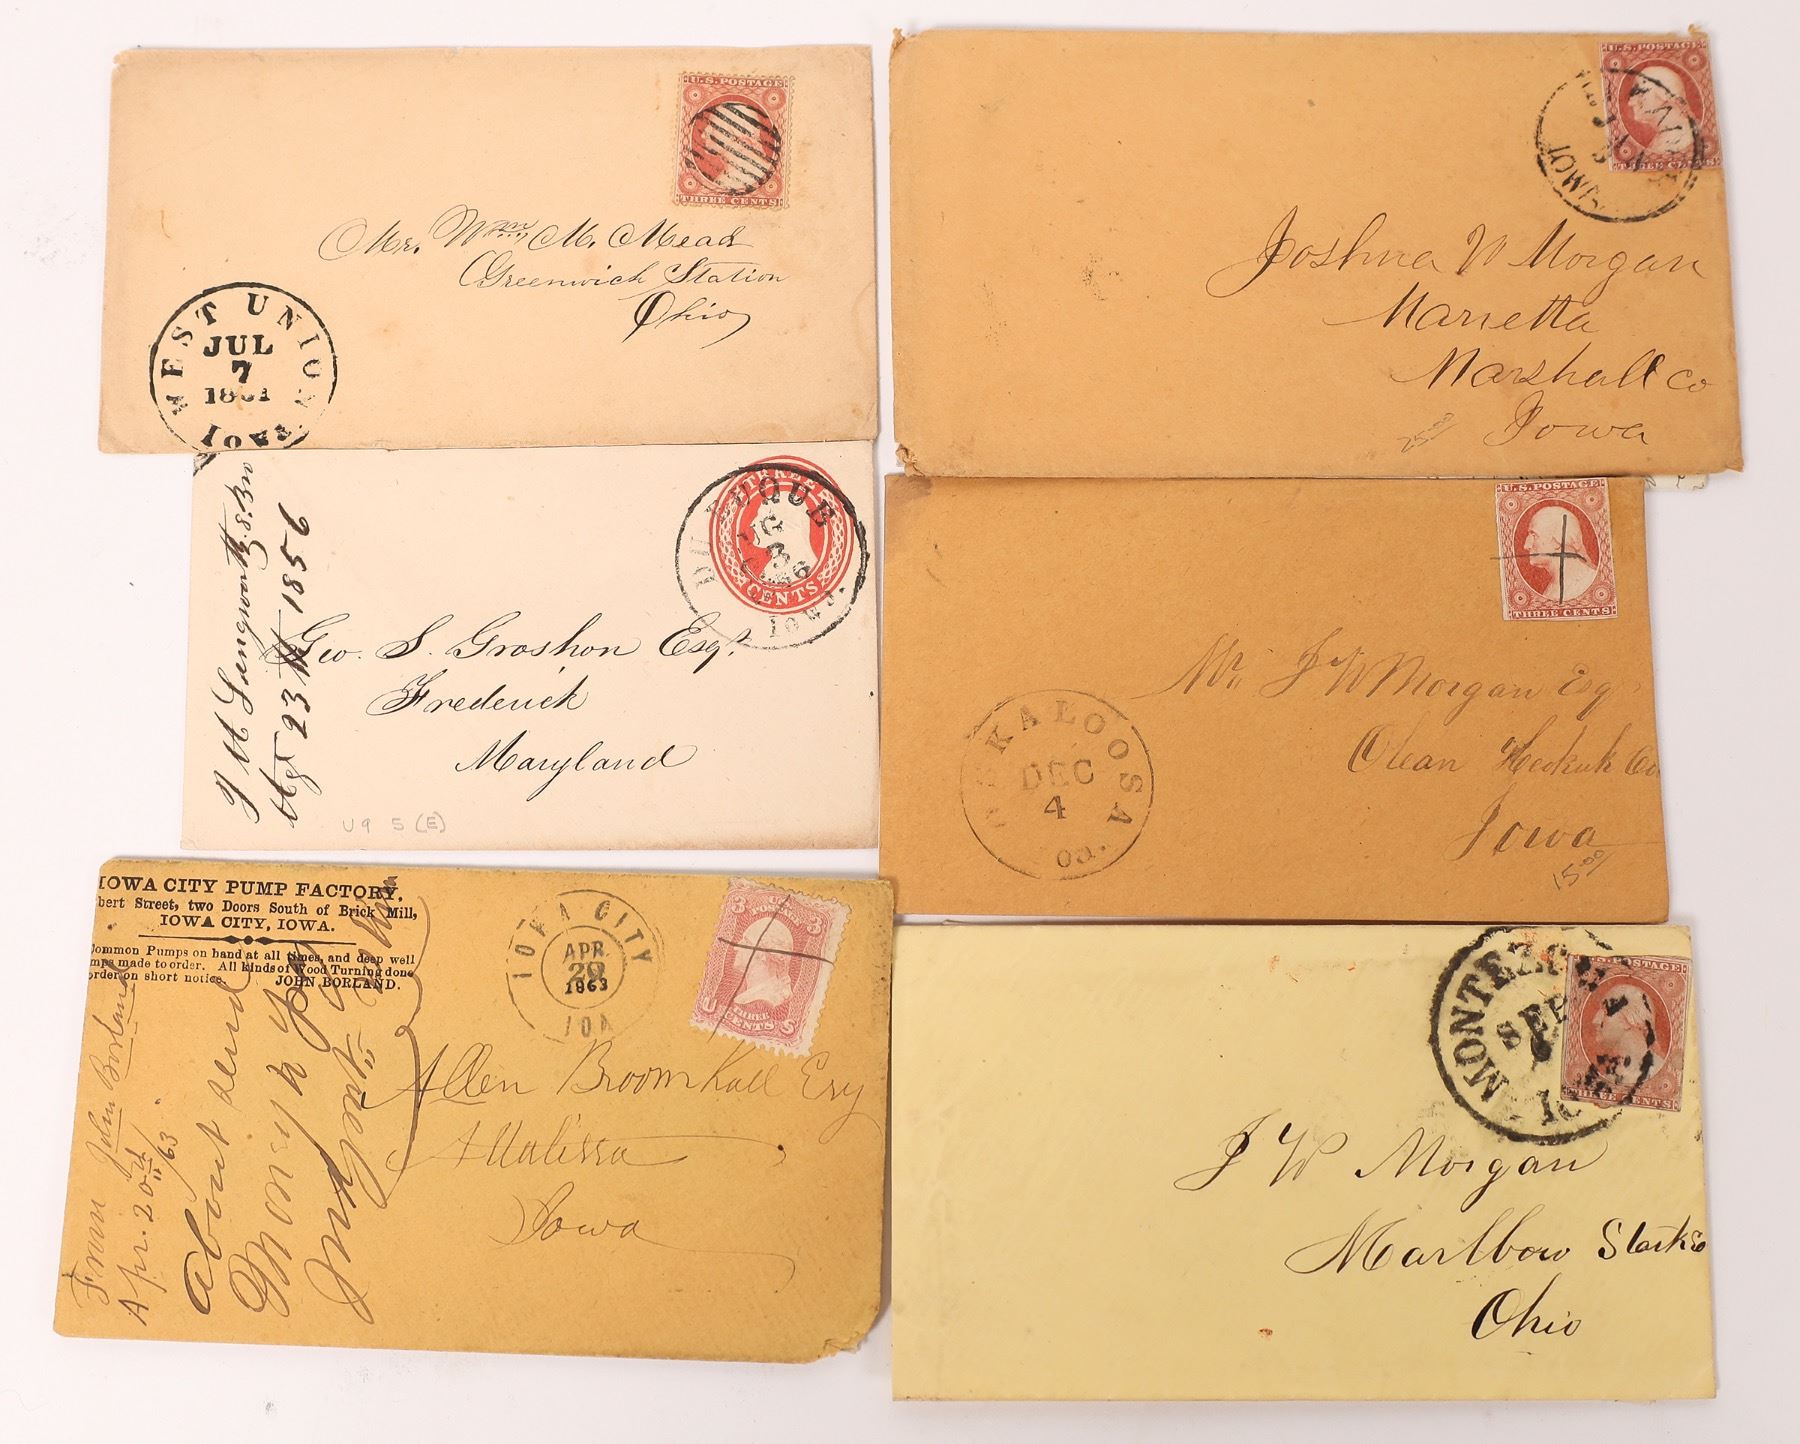 U.S. POSTAGE
THREE CENTS
Mr. Wm M. Mead
Greenwich Station
Ohio
WEST UNION
JUL
7
1861
IOWA
U.S. POSTAGE
THREE CENTS
JAN
IOWA
Joshua W Morgan
Marietta
Marshall Co
Iowa
25.00
THREE
CENTS
DUBUQUE
3
Iowa.
J H Langworthy & Bro
23 1856
Geo. S. Groshon Esqr.
Frederick
Maryland
U9 5 (E)
U.S. POSTAGE
THREE CENTS
OSKALOOSA
DEC
4
Io.
Mr. J W Morgan Esq
Olean Keokuk Co
Iowa
15.00
IOWA CITY PUMP FACTORY,
bert Street, two Doors South of Brick Mill,
IOWA CITY, IOWA.
Common Pumps on hand at all times, and deep well
mps made to order. All kinds of Wood Turning done
order on short notice. JOHN BORLAND.
IOWA CITY
APR
20
1863
IOA
3 U.S. POSTAGE 3
THREE
CENTS
U S
From John Borland
Apr. 20th/63
about send
Money
Allen Broomhall Esq
Atalissa
Iowa
MONTEZUMA
SEP
IOWA
POSTAGE
THREE CENTS
J W Morgan
Marlbow Stark Co
Ohio